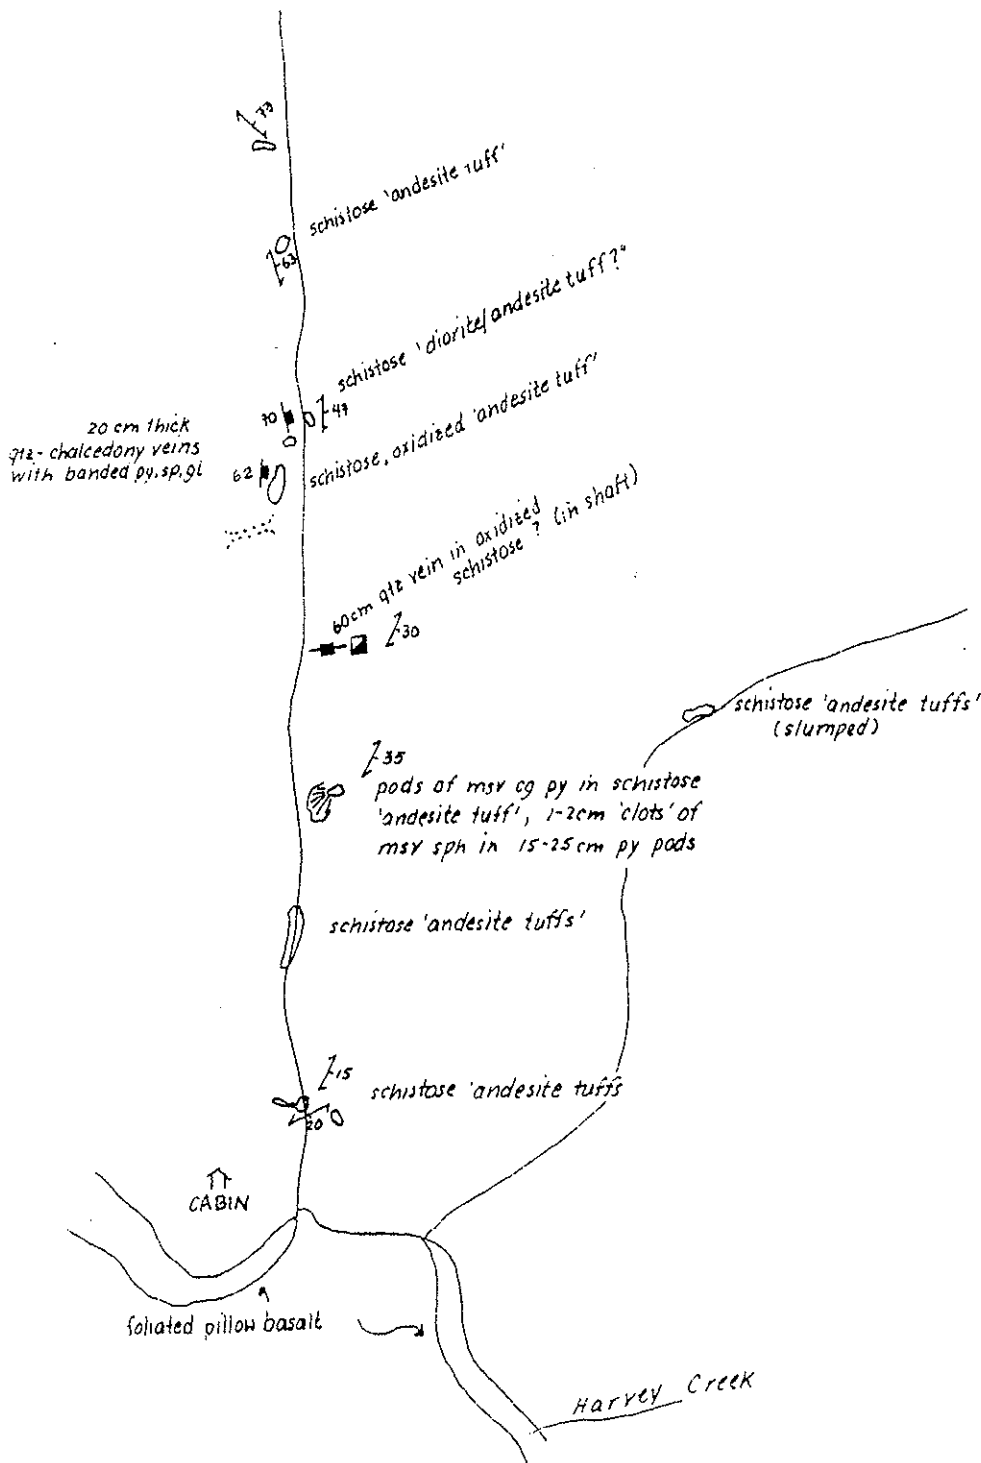 73
schistose 'andesite tuff'
63
schistose 'diorite/andesite tuff?"
70
47
20 cm thick
qtz-chalcedony veins
with banded py, sp, gl
62
schistose, oxidized 'andesite tuff'
60cm qtz vein in oxidized
schistose ? (in shaft)
30
schistose 'andesite tuffs'
(slumped)
35
pods of msv cg py in schistose
'andesite tuff', 1-2cm 'clots' of
msv sph in 15-25cm py pods
schistose 'andesite tuffs'
15
schistose 'andesite tuffs
20
CABIN
foliated pillow basalt
Harvey Creek